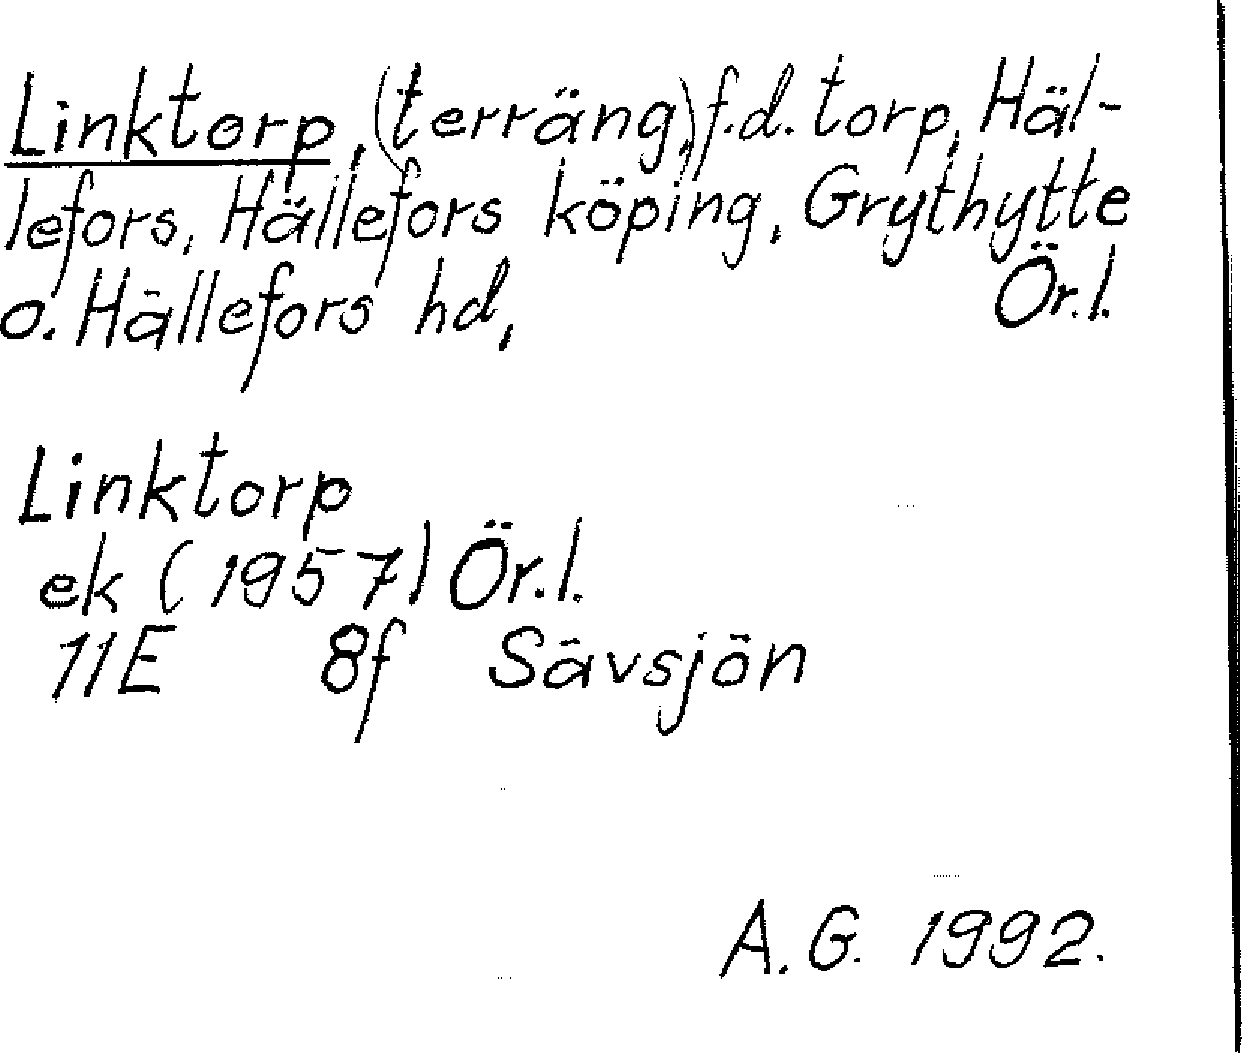 Linktorp, (terräng,) f.d. torp, Häl-
lefors, Hällefors köping, Grythytte
o. Hällefors hd, Ör.l.
Linktorp
ek (1957) Ör.l.
11E 8f Sävsjön
A.G. 1992.